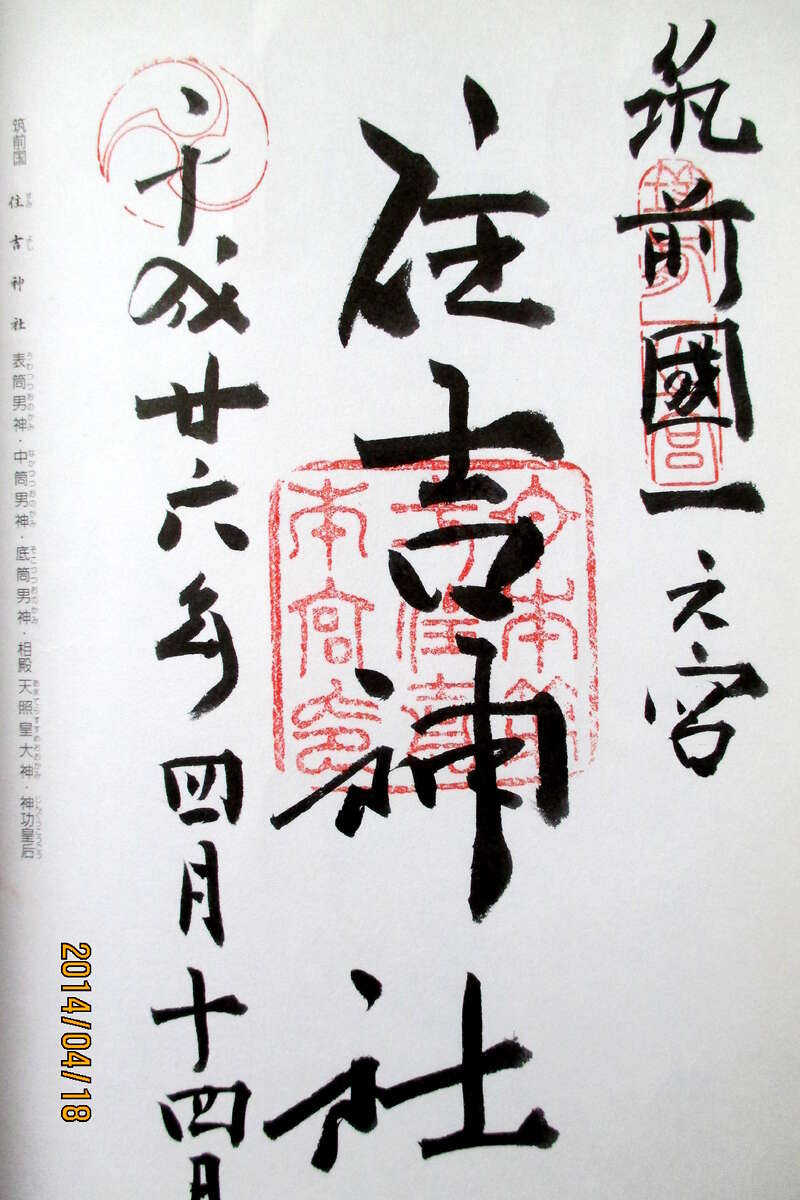 筑前國一之宮
住吉神社
平成廿六年四月十四日
筑前国 住吉神社 表筒男神・中筒男神・底筒男神・相殿 天照皇大神・神功皇后
2014/04/18